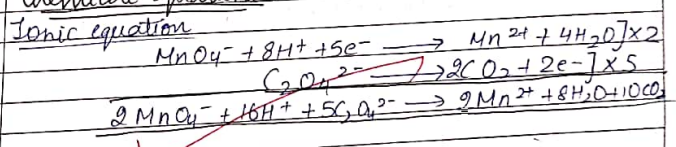 Ionic equation
MnO4⁻ + 8H⁺ + 5e⁻ ⟶ Mn²⁺ + 4H2O]×2
C2O4²⁻ ⟶ 2CO2 + 2e⁻]×5
2MnO4⁻ + 16H⁺ + 5C2O4²⁻ ⟶ 2Mn²⁺ + 8H2O + 10CO2